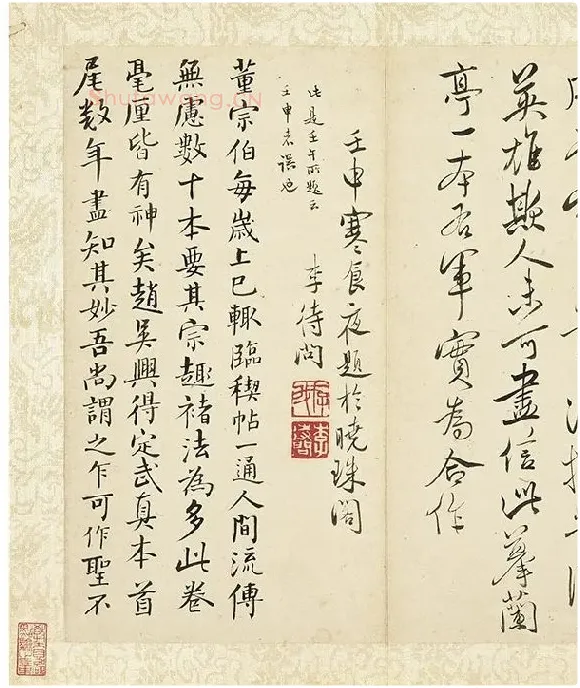 英雄欺人未可盡信此摹蘭
亭一本右軍實為合作
壬申寒食夜題於曉珠閣
李待問
此是壬午所題云
壬申者誤也
董宗伯每歲上巳輒臨稧帖一通人間流傳
無慮數十本要其宗趣褚法為多此卷
毫厘皆有神矣趙吳興得定武真本首
尾数年盡知其妙吾尚謂之乍可作聖不
Shufawang.CN